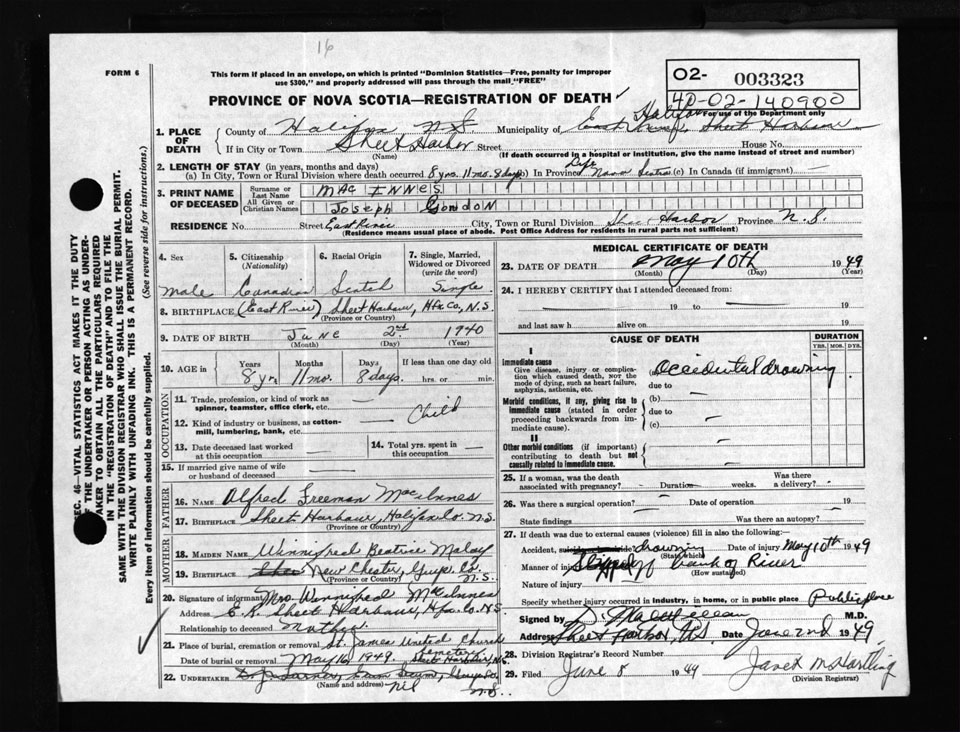 16
FORM 6
This form if placed in an envelope, on which is printed "Dominion Statistics—Free, penalty for improper
use $300," and properly addressed will pass through the mail "FREE"
02- 003323
40-02-140900
For use of the Department only
PROVINCE OF NOVA SCOTIA—REGISTRATION OF DEATH
1. PLACE OF DEATH
County of Halifax N.S. Municipality of East River, Sheet Harbour Halifax
If in City or Town Sheet Harbor Street House No.
(Name) (If death occurred in a hospital or institution, give the name instead of street and number)
2. LENGTH OF STAY (in years, months and days)
(a) In City, Town or Rural Division where death occurred 8 yrs. 11 mo. 8 days (b) In Province Life Nova Scotia (c) In Canada (if immigrant) —
3. PRINT NAME OF DECEASED
Surname or Last Name MAC INNES
All Given or Christian Names JOSEPH GORDON
RESIDENCE No. Street East River City, Town or Rural Division Sheet Harbor Province N.S.
(Residence means usual place of abode. Post Office Address for residents in rural parts not sufficient)
4. Sex male
5. Citizenship (Nationality) Canadian
6. Racial Origin
7. Single, Married, Widowed or Divorced (write the word) Single
8. BIRTHPLACE (East River) Sheet Harbour, Hfx. Co., N.S.
(Province or Country)
9. DATE OF BIRTH June 2nd 1940
(Month) (Day) (Year)
10. AGE in Years Months Days If less than one day old
8 yrs 11 mo. 8 days. hrs. or min.
OCCUPATION
11. Trade, profession, or kind of work as spinner, teamster, office clerk, etc. —
12. Kind of industry or business, as cotton-mill, lumbering, bank, etc. Child
13. Date deceased last worked at this occupation —
14. Total yrs. spent in this occupation —
15. If married give name of wife or husband of deceased —
FATHER
16. NAME Alfred Freeman MacInnes
17. BIRTHPLACE Sheet Harbour, Halifax Co. N.S.
(Province or Country)
MOTHER
18. MAIDEN NAME Winnifred Beatrice Malay
19. BIRTHPLACE New Chester, Guys. Co. N.S.
(Province or Country)
20. Signature of informant Mrs Winnifred MacInnes
Address E.R. Sheet Harbour, Hfx. Co. N.S.
Relationship to deceased Mother
21. Place of burial, cremation or removal St. James United Church Cemetery
Date of burial or removal May 16, 1949. Sheet Harbour, N.S.
22. UNDERTAKER
(Name and address) nil N.S.
MEDICAL CERTIFICATE OF DEATH
23. DATE OF DEATH May 10th 1949
(Month) (Day) (Year)
24. I HEREBY CERTIFY that I attended deceased from:
— 19 to — 19
and last saw h alive on — 19
CAUSE OF DEATH DURATION
YRS. MOS. DYS.
I
Immediate cause
Give disease, injury or complication which caused death, not the mode of dying, such as heart failure, asphyxia, asthenia, etc.
(a) Accidental drowning
due to
Morbid conditions, if any, giving rise to immediate cause (stated in order proceeding backwards from immediate cause).
(b) —
due to
(c) —
II
Other morbid conditions (if important) contributing to death but not causally related to immediate cause.
25. If a woman, was the death associated with pregnancy? - Duration — weeks. Was there a delivery? -
26. Was there a surgical operation? - Date of operation — 19
State findings Was there an autopsy?
27. If death was due to external causes (violence) fill in also the following:
Accident, suicide or homicide drowning Date of injury May 10th 1949
(State which)
Manner of injury Slipped off bank of River
(How sustained)
Nature of injury
Specify whether injury occurred in Industry, in home, or in public place Public place
Signed by M.D.
Address Sheet Harbor, N.S. Date June 2nd 1949.
28. Division Registrar's Record Number
29. Filed June 8 1949 Janet McHartling
(Division Registrar)
SEC. 46—VITAL STATISTICS ACT MAKES IT THE DUTY
OF THE UNDERTAKER OR PERSON ACTING AS UNDER-
TAKER TO OBTAIN ALL THE PARTICULARS REQUIRED
IN THE "REGISTRATION OF DEATH" AND TO FILE THE
SAME WITH THE DIVISION REGISTRAR WHO SHALL ISSUE THE BURIAL PERMIT.
WRITE PLAINLY WITH UNFADING INK. THIS IS A PERMANENT RECORD.
Every item of information should be carefully supplied. (See reverse side for instructions.)